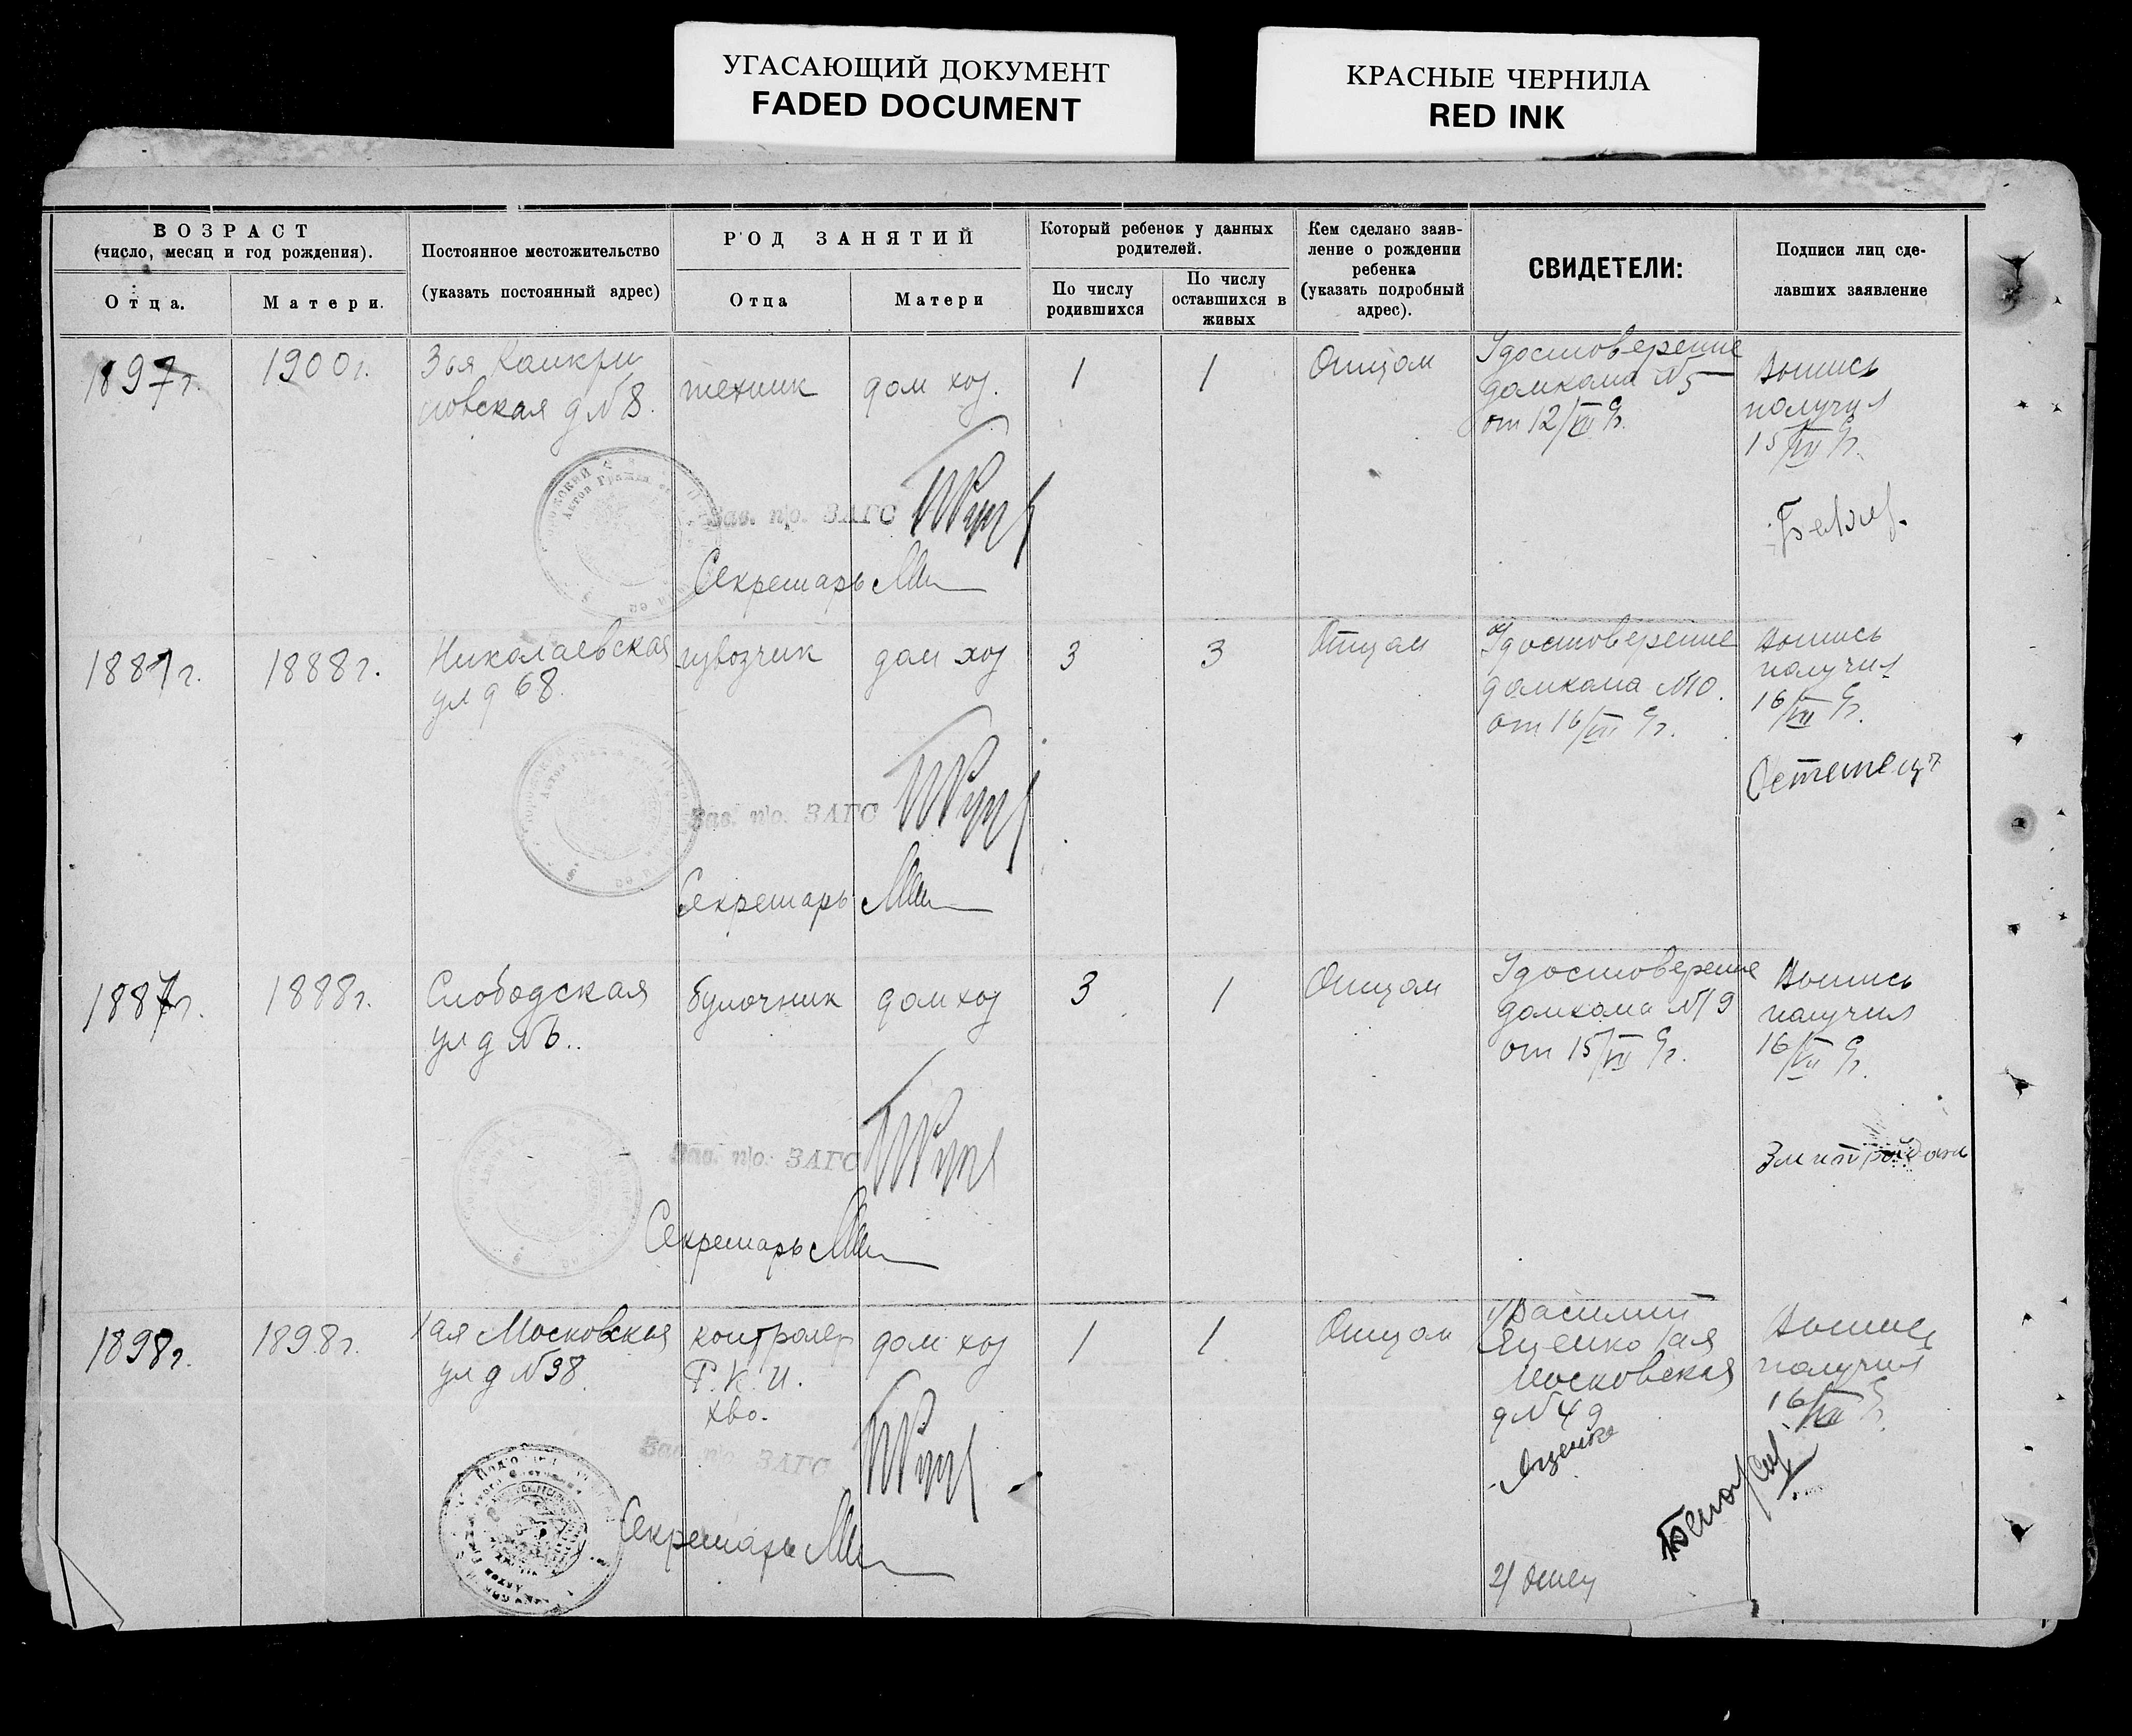 УГАСАЮЩИЙ ДОКУМЕНТ
FADED DOCUMENT
КРАСНЫЕ ЧЕРНИЛА
RED INK
ВОЗРАСТ
(число, месяц и год рождения).
Отца.
Матери.
Постоянное местожительство
(указать постоянный адрес)
РОД ЗАНЯТИЙ
Отца
Матери
Который ребенок у данных
родителей.
По числу
родившихся
По числу
оставшихся в
живых
Кем сделано заяв-
ление о рождении
ребенка
(указать подробный
адрес).
СВИДЕТЕЛИ:
Подписи лиц сде-
лавших заявление
1897г.
1900г.
3ья
новская д N 8.
техник
дом хоз.
1
1
Отцом
Удостоверение
домкома N 5
от 12/VII
Выпись
получил
15/VII
Зав. п/о. ЗАГС
Секретарь
1881г.
1888г.
Николаевская
ул д 68.
извозчик
дом хоз
3
3
Отцом
Удостоверение
домкома N10.
от 16/VII
Выпись
получил
16/VII
Зав. п/о. ЗАГС
Секретарь
1887г.
1888г.
Слободская
ул д N 6.
булочник
дом хоз
3
1
Отцом
Удостоверение
домкома N19
от 15/VII
Выпись
получил
16/VII
Зав. п/о. ЗАГС
Секретарь
1898г.
1898г.
1ая Московская
ул д N 98
контролер
Р. К. И.
дом хоз
1
1
Отцом
1/ Василий
Яценко 1ая
Московская
д N 49
Яценко
2/ Отец
Выпись
получил
16/VII
Зав. п/о. ЗАГС
Секретарь